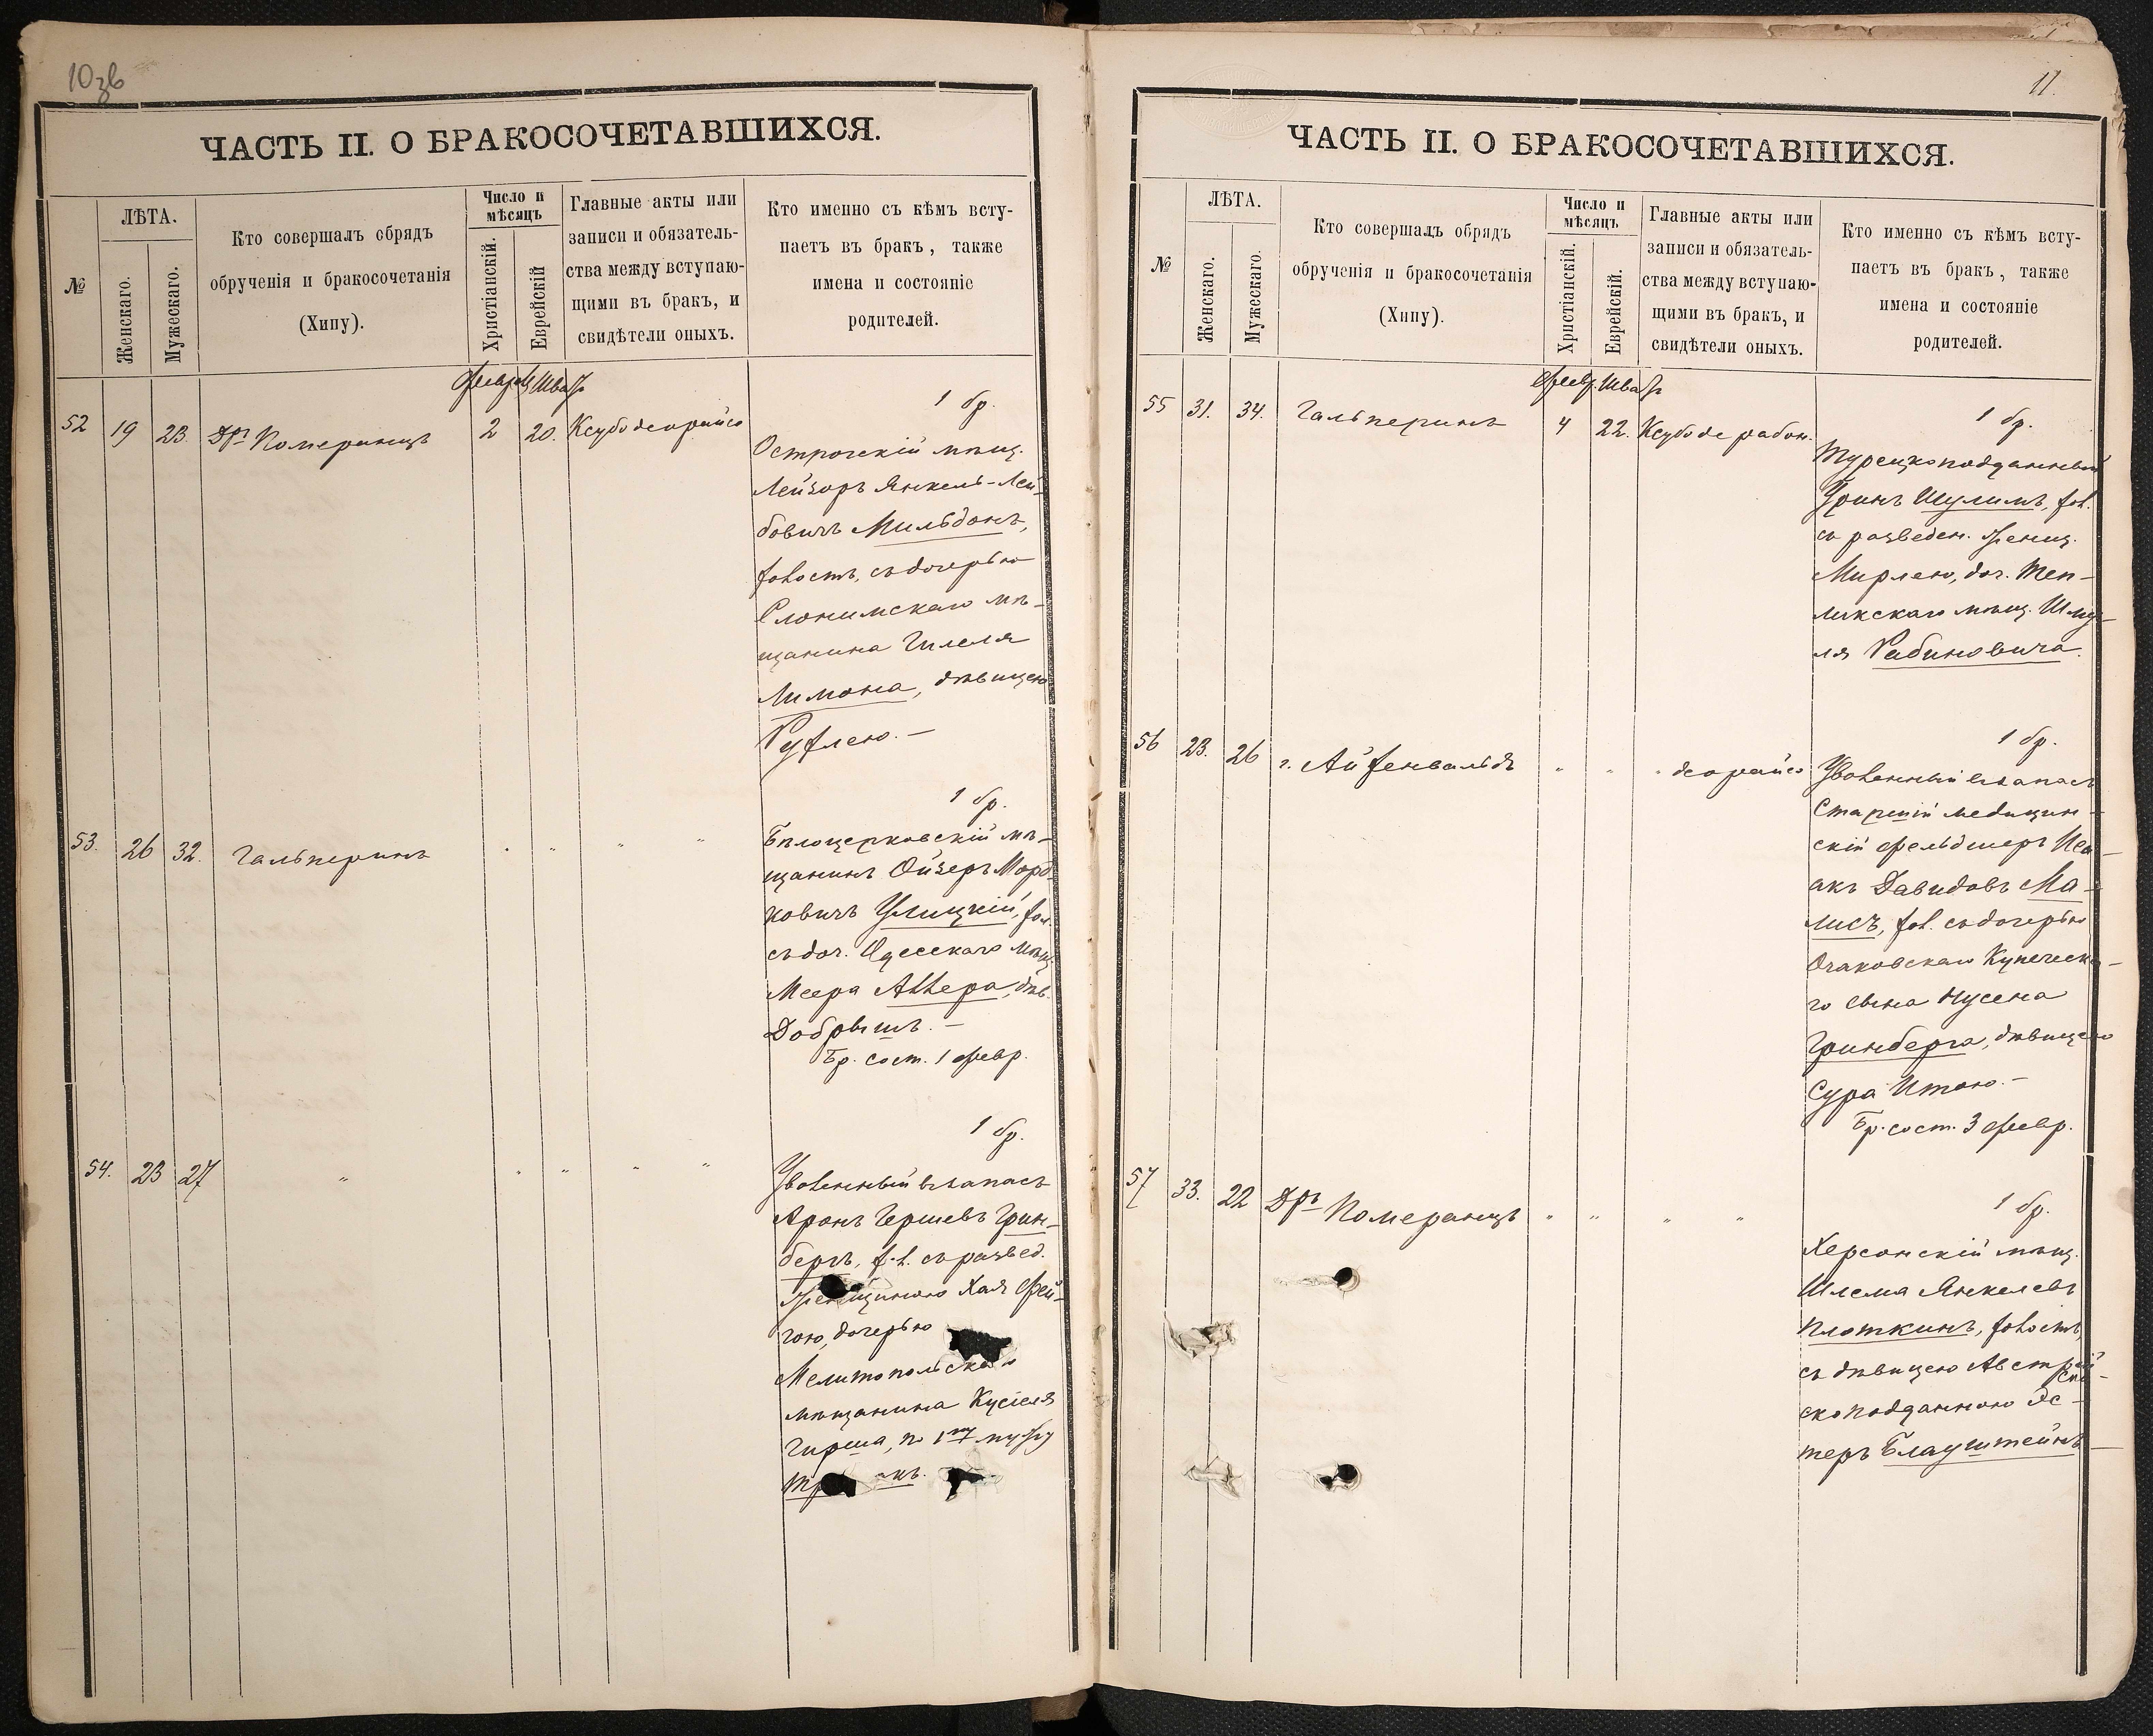 10зв
ЧАСТЬ II. О БРАКОСОЧЕТАВШИХСЯ.
№
ЛѢТА.
Женскаго.
Мужескаго.
Кто совершалъ обрядъ
обрученія и бракосочетанія
(Хипу).
Число и
мѣсяцъ
Христіанскій.
Еврейскій
Главные акты или
записи и обязатель-
ства между вступаю-
щими въ бракъ, и
свидѣтели оныхъ.
Кто именно съ кѣмъ всту-
паетъ въ бракъ, также
имена и состояніе
родителей.
52 19 23. Дръ Померанцъ 2 20. Ксубо деорайсо
1 бр.
Острогскій мѣщ.
Лейзоръ Янкель-Лей-
бовичъ Мильдонъ,
холост, съ дочерью
Слонимскаго мѣ-
щанина Гилеля
Лимона, дѣвицею
Рухлею. —
53. 26 32. Гальперинъ " " " "
1 бр.
Бѣлоцерковскій мѣ-
щанинъ Ойзеръ Морд-
ковичъ Улицкій, хол.
съ доч. Одесскаго мѣщ.
Меера Аллера, дѣв.
Добрышъ. —
Бр. сост. 1 февр.
54. 23 27 " " " " "
1 бр.
Уволенный въ запасъ
Аронъ Гершевъ Грин-
бергъ, х-л. съ развед.
женщиною Хая Фей-
гою, дочерью
Мелитопольскаго
мѣщанина Кусіеля
Гирша, по 1му мужу
11.
ЧАСТЬ II. О БРАКОСОЧЕТАВШИХСЯ.
№
ЛѢТА.
Женскаго.
Мужескаго.
Кто совершалъ обрядъ
обрученія и бракосочетанія
(Хипу).
Число и
мѣсяцъ
Христіанскій.
Еврейскій.
Главные акты или
записи и обязатель-
ства между вступаю-
щими въ бракъ, и
свидѣтели оныхъ.
Кто именно съ кѣмъ всту-
паетъ въ бракъ, также
имена и состояніе
родителей.
Февр. Шватъ
55 31. 34. Гальперинъ 4 22. Ксубо де рабон.
1 бр.
Турецкоподданный
Гринъ Шулимъ, хол.
съ разведен. женщ.
Мирлею, доч. Теп-
ликскаго мѣщ. Шму-
ля Рабиновича.
56 23. 26 г. Айзенвальдъ " " " деорайсо
1 бр.
Уволенный въ запасъ
Старшій медицин-
скій фельдшеръ Иса-
акъ Давидовъ Ма-
лисъ, хол. съ дочерью
Очаковскаго Купеческа-
го сына Нусена
Гринберга, дѣвицею
Сура Итою. —
Бр. сост. 3 февр.
57 33. 22 Дръ Померанцъ " " " "
1 бр.
Херсонскій мѣщ.
Шлема Янкелевъ
Плоткинъ, холостъ,
съ дѣвицею Австрій-
скоподданною Эс-
теръ Блауштейнъ —